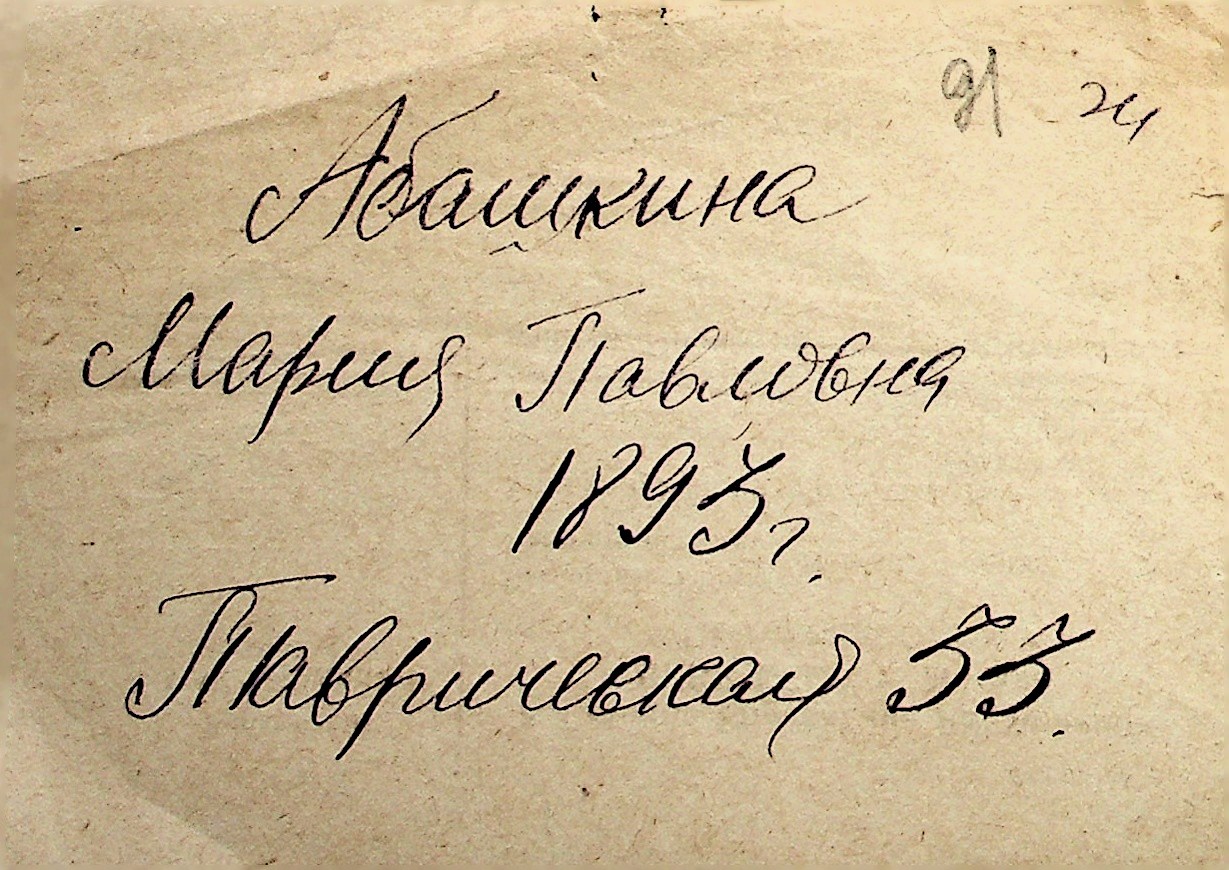 91
Абашкина
Мария Павловна
1893г.
Таврическая 33.